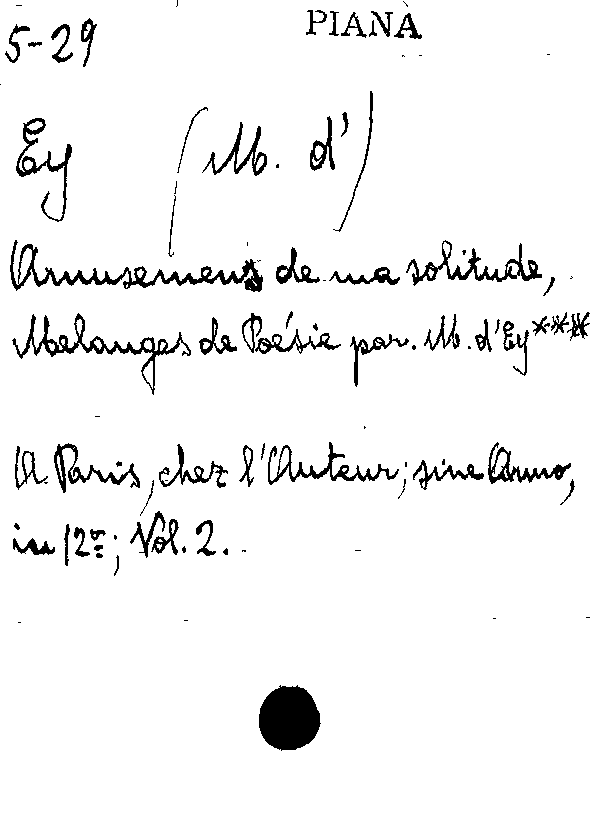 5-29 PIANA
Ey (M. d')
Amusemens de ma solitude,
Melanges de Poésie par. M. d'Ey***
A Paris, chez l'Auteur; sine Anno,
in 12º; Vol. 2.